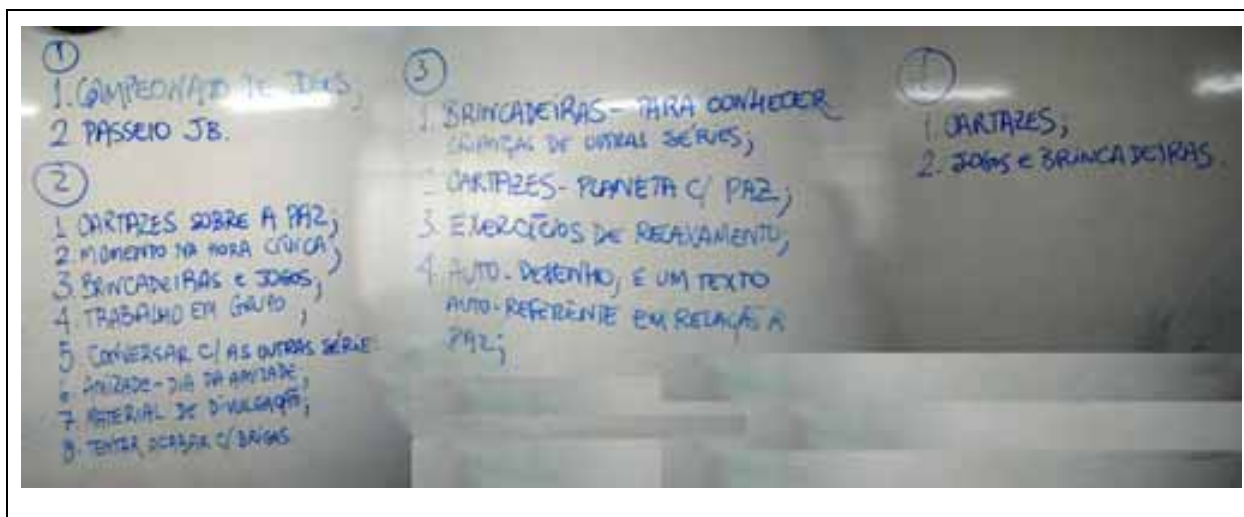 ①
1. CAMPEONATO DE JOGOS;
2 PASSEIO JB.
②
1 CARTAZES SOBRE A PAZ;
2. MOMENTO NA HORA CÍVICA;
3. BRINCADEIRAS E JOGOS;
4. TRABALHO EM GRUPO;
5 CONVERSAR C/ AS OUTRAS SÉRIE
6 AMIZADE - DIA DA AMIZADE;
7. MATERIAL DE DIVULGAÇÃO;
8. TENTAR ACABAR C/ BRIGAS
③
1. BRINCADEIRAS - PARA CONHECER
CRIANÇAS DE OUTRAS SÉRIES;
CARTAZES - PLANETA C/ PAZ;
3. EXERCÍCIOS DE RELAXAMENTO;
4. AUTO-DESENHO, E UM TEXTO
AUTO-REFERENTE EM RELAÇÃO A
PAZ;
1. CARTAZES;
2. JOGOS E BRINCADEIRAS.